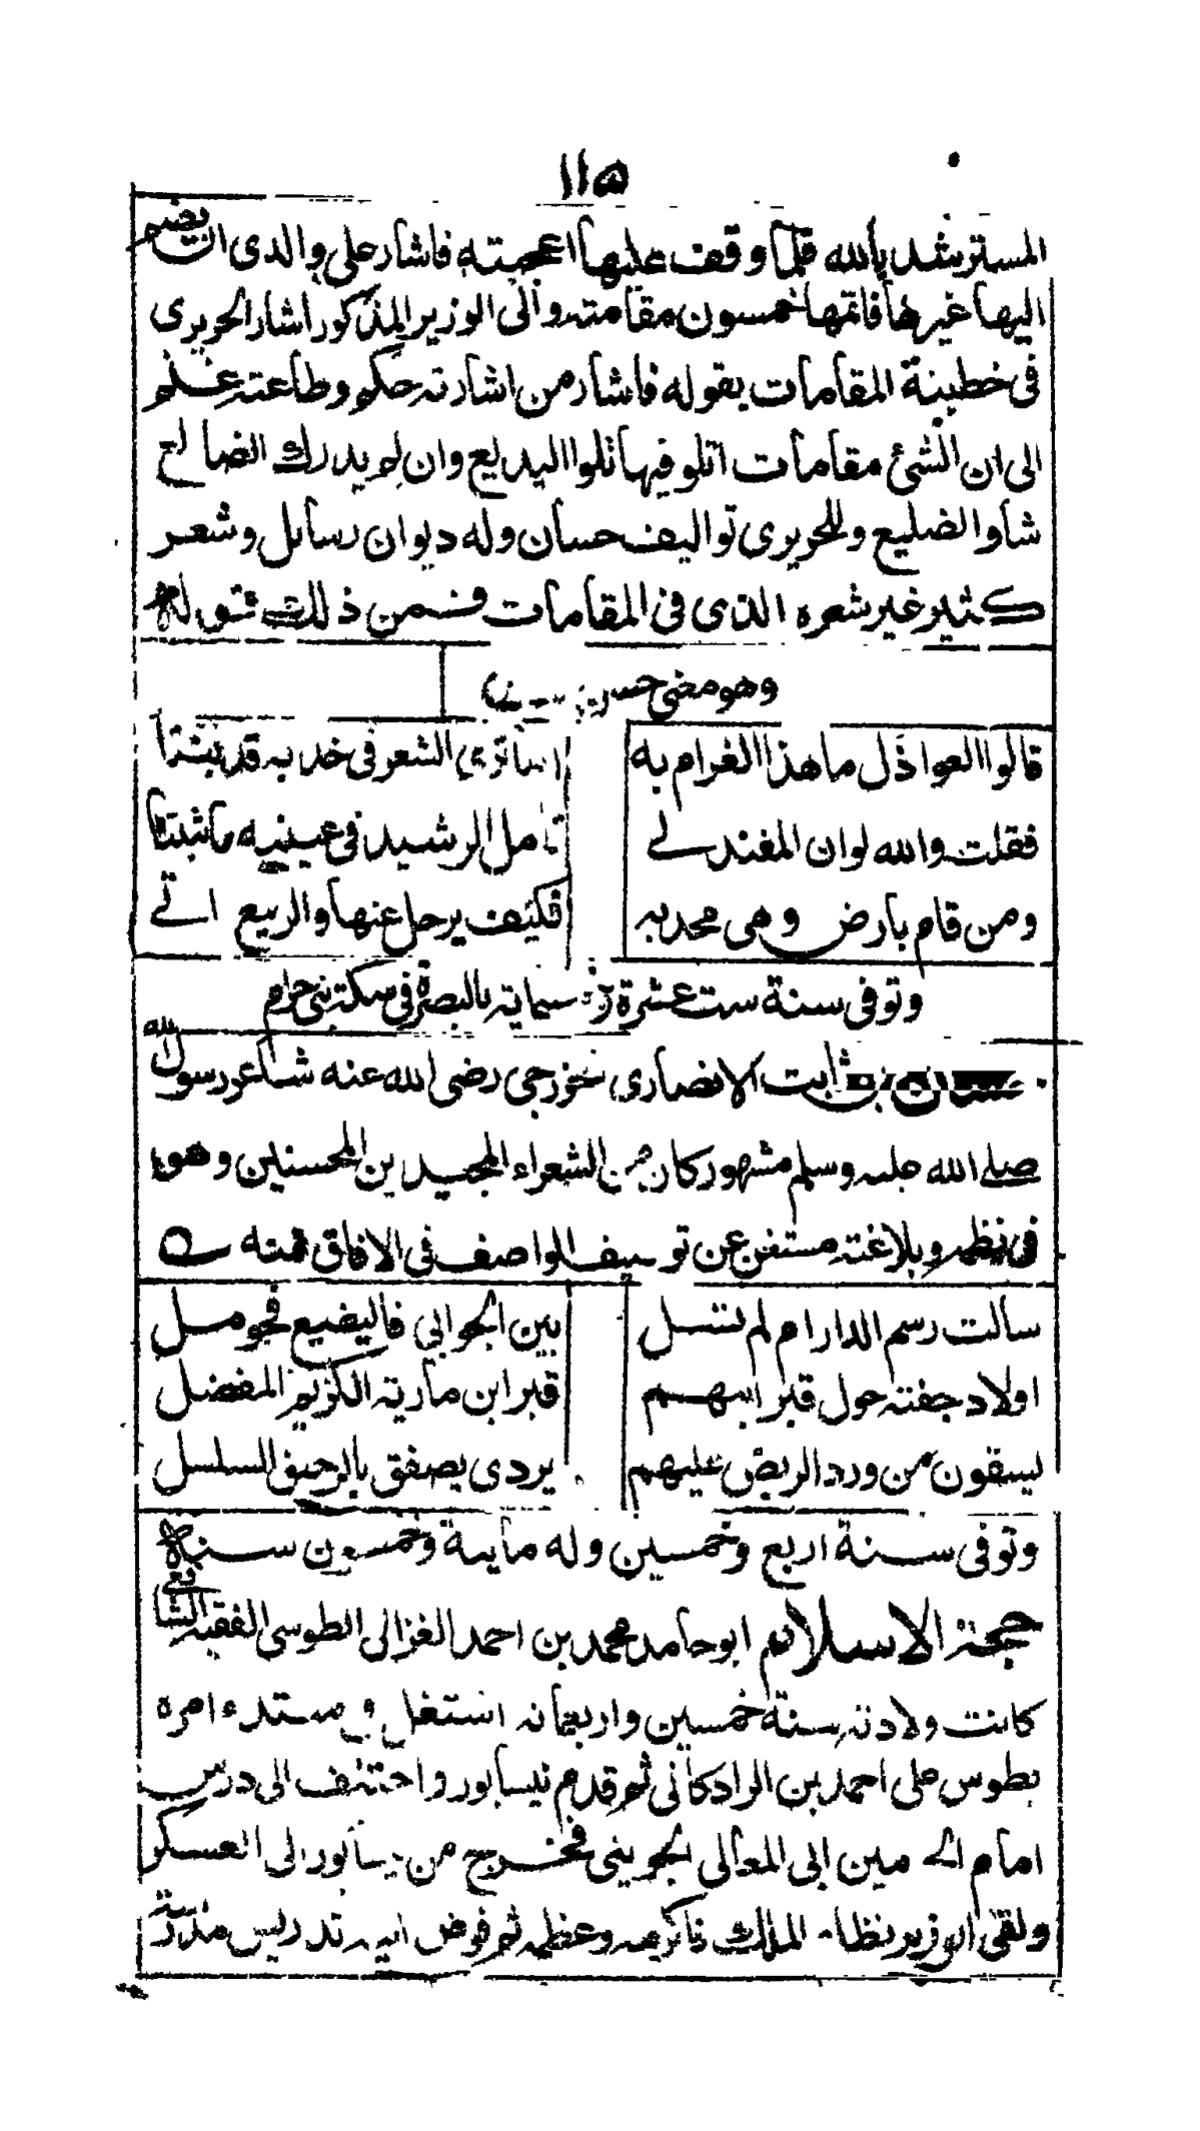 ١١٥
المسترشد بالله فلما وقف عليها اعجبته فاشار على والدى ان يضم
اليها غيرها فاتمها خمسون مقامته والى الوزير المذكور اشار الحريرى
فى خطبة المقامات بقوله فاشار من اشارته حكم وطاعته غنم
الى ان انشئ مقامات اتلو فيها تلو البديع وان لم يدرك الضالع
شأو الضليع وللحريرى تواليف حسان وله ديوان رسايل وشعر
كثير غير شعره الذى فى المقامات فمن ذلك قوله
وهو معنى حسن
قالوا العواذل ما هذا الغرام به
اما ترى الشعر فى خديه قد نبتا
فقلت والله لو ان المفند لے
تامل الرشيد فى عينيه ما ثبتا
ومن قام بارض وهى مجدبه
فكيف يرحل عنها والربيع اتے
وتوفى سنة ست عشرة وخمسمايته بالبصرة فى سكته بنى حرام
حسان بن ثابت الانصارى خزرجى رضى الله عنه شاعر رسول الله
صلے الله عليه وسلم مشهور كان من الشعراء المجيدين المحسنين وهو
فى نظمه وبلاغته مستغن عن توصيف الواصف فى الافاق فمنه
سالت رسم الدار ام لم تسل
بين الجوابي فاليضيع فحومل
اولاد جفنته حول قبر ابيهم
قبر ابن مارية الكريم المفضل
يسقون من ورد البريص عليهم
بردى يصفق بالرحيق السلسل
وتوفى سنة اربع وخمسين وله ماية وخمسون سنة
حجة الاسلام ابو حامد محمد بن احمد الغزالى الطوسى الفقيه الشافعى
كانت ولادته سنة خمسين واربعمائه اشتغل فى مبتدء امره
بطوس على احمد بن الرادكانى ثم قدم نيسابور واختلف الى درس
امام الحرمين ابى المعالى الجوينى فخرج من نيسابور الى العسكر
ولقى الوزير نظام الملك فاكرمه وعظمه ثم فوض اليه تدريس مدرسة